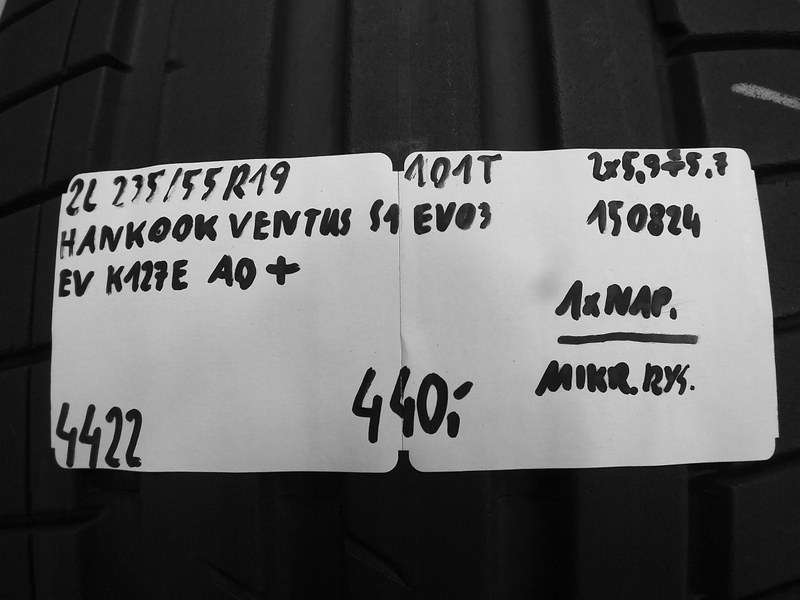 2L 235/55R19 101T 2x5,9÷5,7
HANKOOK VENTUS S1 EVO3 150824
EV K127E AO+
1xNAP.
MIKR. RYS.
4422 440,-